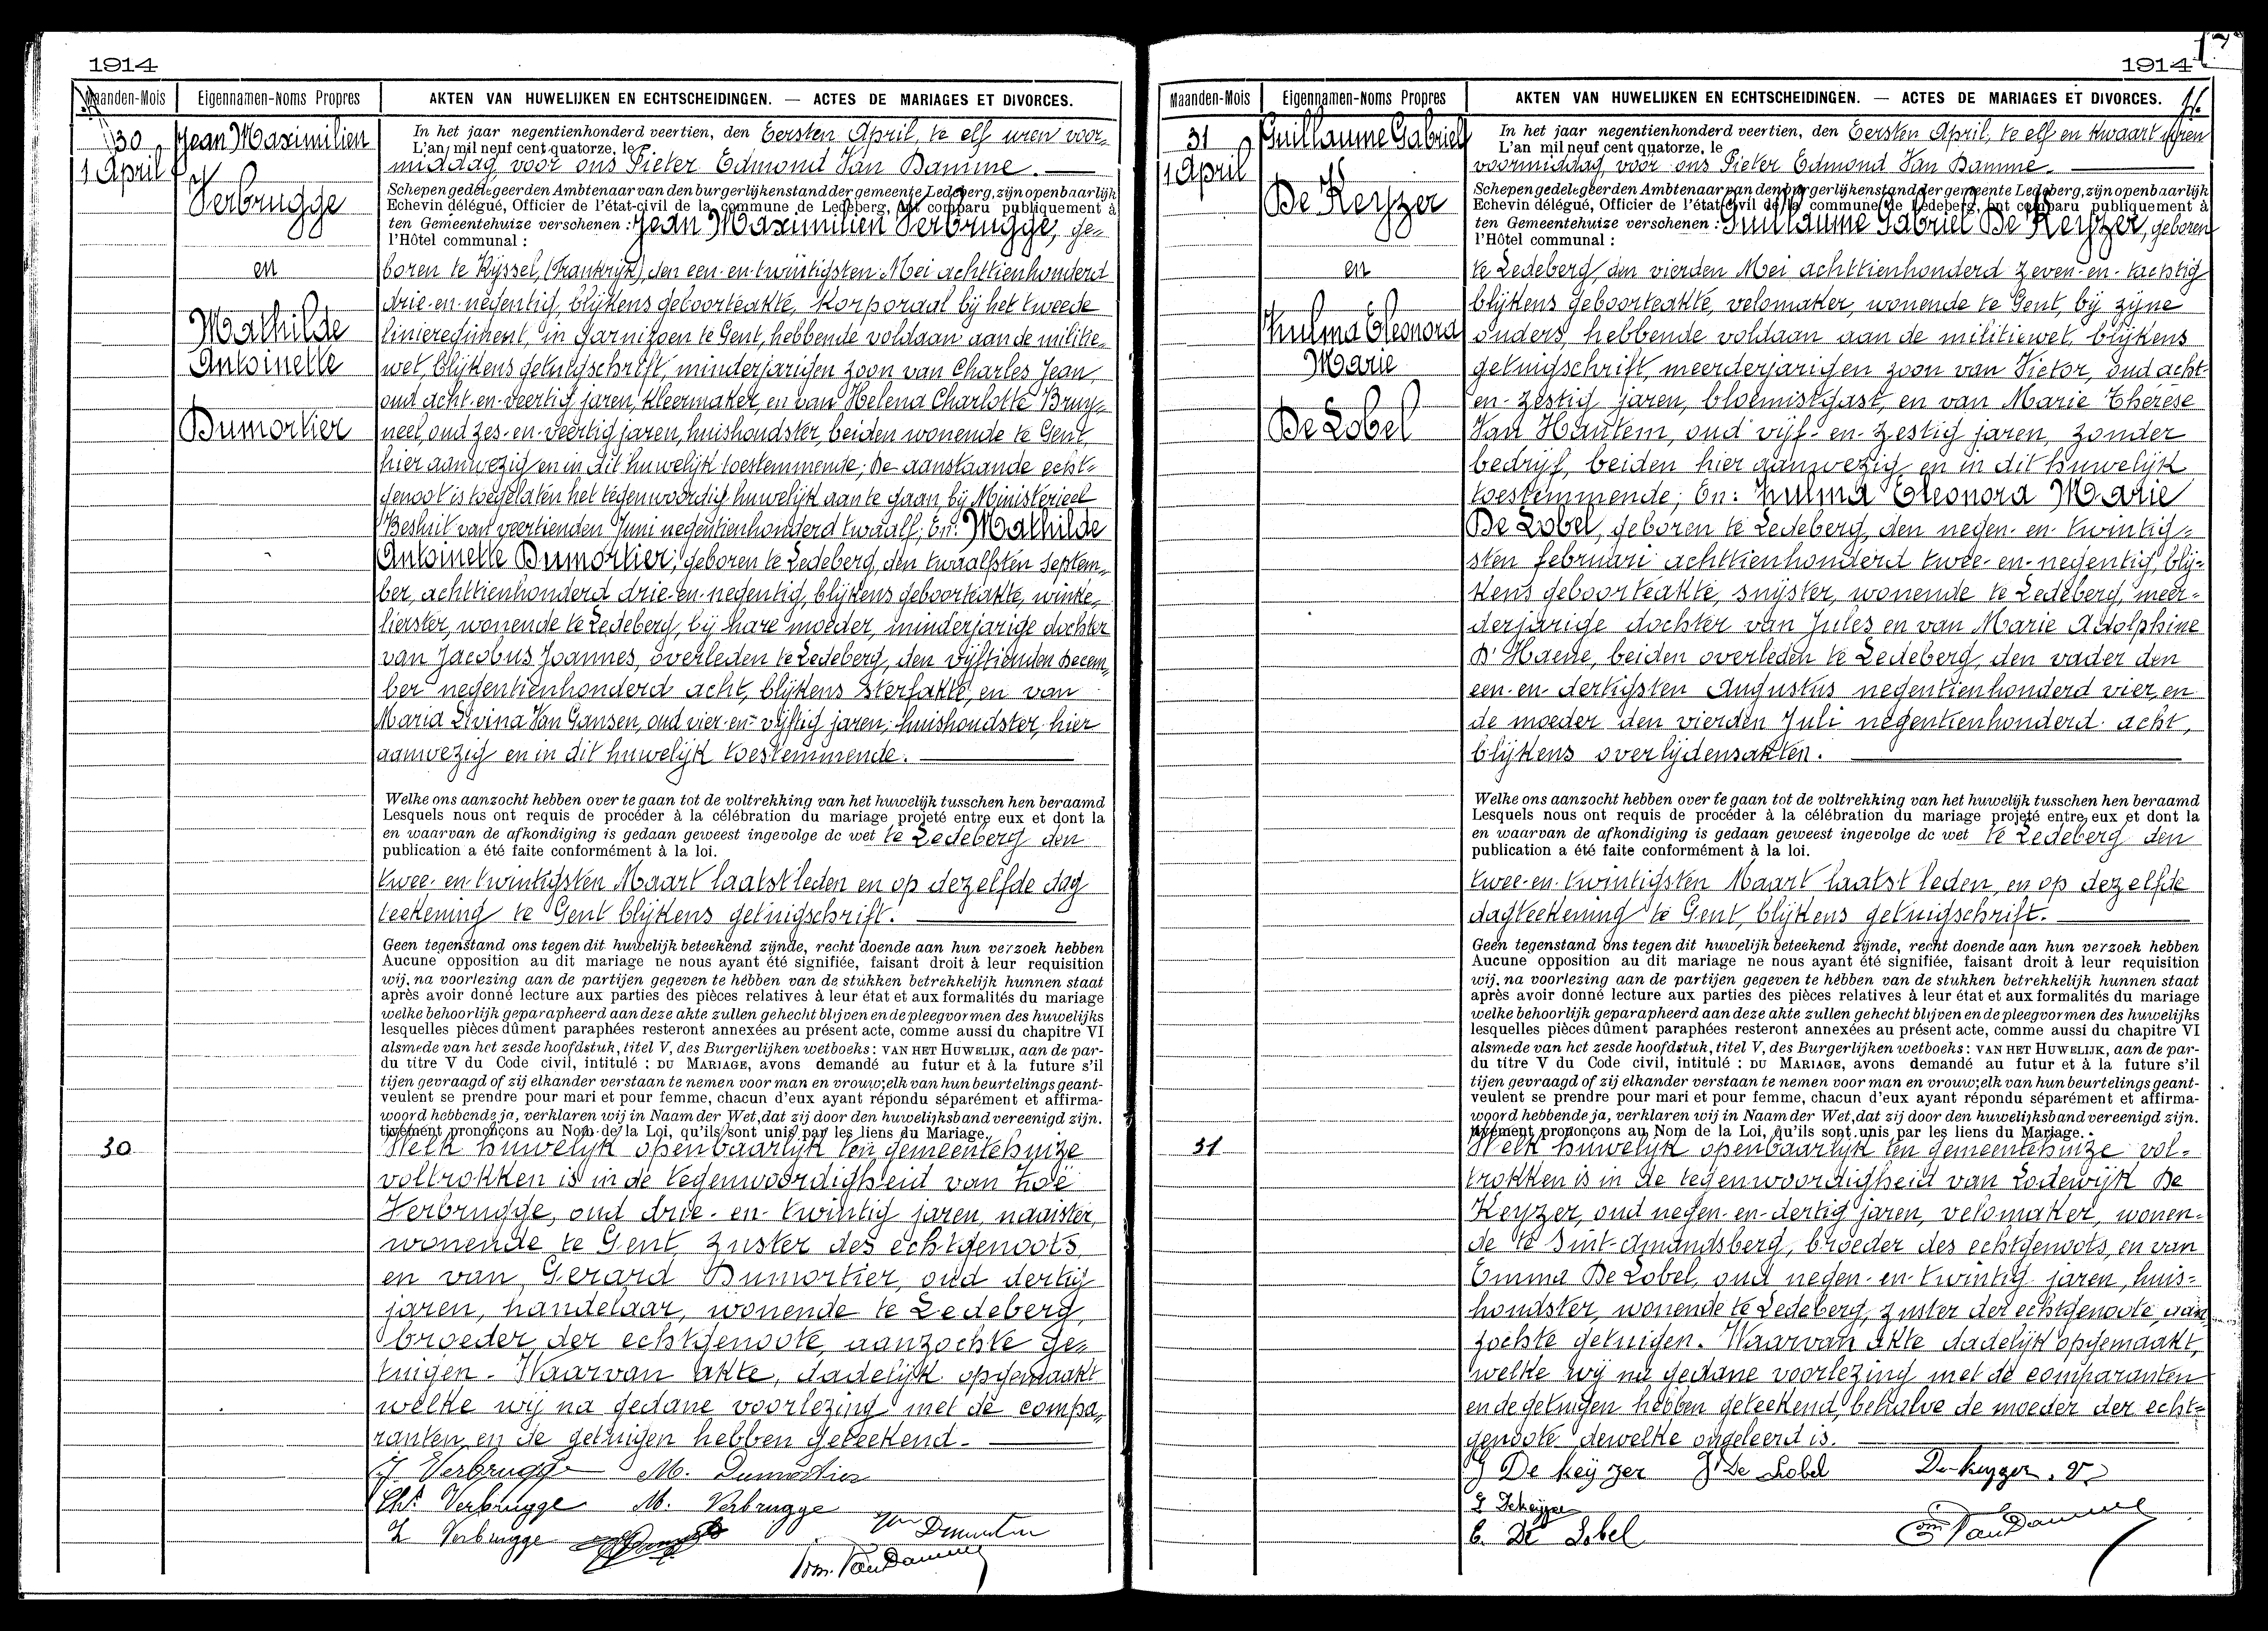 1914
Maanden-Mois Eigennamen-Noms Propres AKTEN VAN HUWELIJKEN EN ECHTSCHEIDINGEN. — ACTES DE MARIAGES ET DIVORCES.
30
1 April
Jean Maximilien
Verbrugge
en
Mathilde
Antoinette
Dumortier
In het jaar negentienhonderd veertien, den Eersten April, te elf uren voor-
L'an mil neuf cent quatorze, le
middag, voor ons Pieter Edmond Van Damme.
Schepen gedelegeerden Ambtenaar van den burgerlijkenstand der gemeente Ledeberg, zijn openbaarlijk
Echevin délégué, Officier de l'état-civil de la commune de Ledeberg, ont comparu publiquement à
ten Gemeentehuize verschenen: Jean Maximilien Verbrugge, ge-
l'Hôtel communal:
boren te Rijssel, (Frankrijk), den een-en-twintigsten Mei achttienhonderd
drie-en-negentig, blijkens geboorteakte, korporaal bij het tweede
linieregiment, in garnizoen te Gent, hebbende voldaan aan de militie-
wet, blijkens getuigschrift, minderjarigen zoon van Charles Jean,
oud acht-en-veertig jaren, kleermaker, en van Helena Charlotte Bruy-
neel, oud zes-en-veertig jaren, huishoudster, beiden wonende te Gent,
hier aanwezig en in dit huwelijk toestemmende; De aanstaande echt-
genoot is toegelaten het tegenwoordig huwelijk aan te gaan, bij Ministerieel
Besluit van veertienden Juni negentienhonderd twaalf; En: Mathilde
Antoinette Dumortier, geboren te Ledeberg, den twaalfsten Septem-
ber, achttienhonderd drie-en-negentig, blijkens geboorteakte, winke-
lierster, wonende te Ledeberg, bij hare moeder, minderjarige dochter
van Jacobus Joannes, overleden te Ledeberg, den vijftienden Decem-
ber negentienhonderd acht, blijkens sterfakte, en van
Maria Livina Van Gansen, oud vier-en-vijftig jaren, huishoudster, hier
aanwezig en in dit huwelijk toestemmende.
Welke ons aanzocht hebben over te gaan tot de voltrekking van het huwelijk tusschen hen beraamd
Lesquels nous ont requis de procéder à la célébration du mariage projeté entre eux et dont la
en waarvan de afkondiging is gedaan geweest ingevolge de wet te Ledeberg den
publication a été faite conformément à la loi.
twee-en-twintigsten Maart laatstleden en op dezelfde dag
teekening te Gent blijkens getuigschrift.
Geen tegenstand ons tegen dit huwelijk beteekend zijnde, recht doende aan hun verzoek hebben
Aucune opposition au dit mariage ne nous ayant été signifiée, faisant droit à leur requisition
wij, na voorlezing aan de partijen gegeven te hebben van de stukken betrekkelijk hunnen staat
après avoir donné lecture aux parties des pièces relatives à leur état et aux formalités du mariage
welke behoorlijk geparapheerd aan deze akte zullen gehecht blijven en de pleegvormen des huwelijks
lesquelles pièces dûment paraphées resteront annexées au présent acte, comme aussi du chapitre VI
alsmede van het zesde hoofdstuk, titel V, des Burgerlijken wetboeks: VAN HET HUWELIJK, aan de par-
du titre V du Code civil, intitulé: DU MARIAGE, avons demandé au futur et à la future s'il
tijen gevraagd of zij elkander verstaan te nemen voor man en vrouw; elk van hun beurtelings geant-
veulent se prendre pour mari et pour femme, chacun d'eux ayant répondu séparément et affirma-
woord hebbende ja, verklaren wij in Naam der Wet, dat zij door den huwelijksband vereenigd zijn.
tivement prononçons au Nom de la Loi, qu'ils sont unis par les liens du Mariage.
30
Welk huwelijk openbaarlijk ten gemeentehuize
voltrokken is in de tegenwoordigheid van Zoë
Verbrugge, oud drie-en-twintig jaren, naaister,
wonende te Gent, zuster des echtgenoots,
en van Gerard Dumortier, oud dertig
jaren, handelaar, wonende te Ledeberg,
broeder der echtgenoote, aanzochte ge-
tuigen. Waarvan akte, dadelijk opgemaakt
welke wij na gedane voorlezing met de compa-
ranten en de getuigen hebben geteekend.
J. Verbrugge M. Dumortier
Chs Verbrugge M. Verbrugge
Z Verbrugge
Van Damme
1914
Maanden-Mois Eigennamen-Noms Propres AKTEN VAN HUWELIJKEN EN ECHTSCHEIDINGEN. — ACTES DE MARIAGES ET DIVORCES.
31
1 April
Guillaume Gabriel
De Keyzer
en
Zulma Eleonora
Marie
De Lobel
In het jaar negentienhonderd veertien, den Eersten April, te elf en kwaart uren
L'an mil neuf cent quatorze, le
voormiddag, voor ons Pieter Edmond Van Damme.
Schepen gedelegeerden Ambtenaar van den burgerlijkenstand der gemeente Ledeberg, zijn openbaarlijk
Echevin délégué, Officier de l'état-civil de la commune de Ledeberg, ont comparu publiquement à
ten Gemeentehuize verschenen: Guillaume Gabriel De Keyzer, geboren
l'Hôtel communal:
te Ledeberg, den vierden Mei achttienhonderd zeven-en-tachtig
blijkens geboorteakte, velomaker, wonende te Gent, bij zijne
ouders, hebbende voldaan aan de militiewet, blijkens
getuigschrift, meerderjarigen zoon van Victor, oud acht-
en-zestig jaren, bloemistgast, en van Marie Thérèse
Van Hautem, oud vijf-en-zestig jaren, zonder
bedrijf, beiden hier aanwezig en in dit huwelijk
toestemmende; En: Zulma Eleonora Marie
De Lobel, geboren te Ledeberg, den negen-en-twintig-
sten februari achttienhonderd twee-en-negentig, blij-
kens geboorteakte, snijster, wonende te Ledeberg, meer-
derjarige dochter van Jules en van Marie Adolphine
D'Haene, beiden overleden te Ledeberg, den vader den
een-en-dertigsten Augustus negentienhonderd vier, en
de moeder den vierden Juli negentienhonderd acht,
blijkens overlijdensakten.
Welke ons aanzocht hebben over te gaan tot de voltrekking van het huwelijk tusschen hen beraamd
Lesquels nous ont requis de procéder à la célébration du mariage projeté entre eux et dont la
en waarvan de afkondiging is gedaan geweest ingevolge de wet te Ledeberg den
publication a été faite conformément à la loi.
twee-en-twintigsten Maart laatstleden, en op dezelfde
dagteekening te Gent, blijkens getuigschrift.
Geen tegenstand ons tegen dit huwelijk beteekend zijnde, recht doende aan hun verzoek hebben
Aucune opposition au dit mariage ne nous ayant été signifiée, faisant droit à leur requisition
wij, na voorlezing aan de partijen gegeven te hebben van de stukken betrekkelijk hunnen staat
après avoir donné lecture aux parties des pièces relatives à leur état et aux formalités du mariage
welke behoorlijk geparapheerd aan deze akte zullen gehecht blijven en de pleegvormen des huwelijks
lesquelles pièces dûment paraphées resteront annexées au présent acte, comme aussi du chapitre VI
alsmede van het zesde hoofdstuk, titel V, des Burgerlijken wetboeks: VAN HET HUWELIJK, aan de par-
du titre V du Code civil, intitulé: DU MARIAGE, avons demandé au futur et à la future s'il
tijen gevraagd of zij elkander verstaan te nemen voor man en vrouw; elk van hun beurtelings geant-
veulent se prendre pour mari et pour femme, chacun d'eux ayant répondu séparément et affirma-
woord hebbende ja, verklaren wij in Naam der Wet, dat zij door den huwelijksband vereenigd zijn.
tivement prononçons au Nom de la Loi, qu'ils sont unis par les liens du Mariage.
31
Welk huwelijk openbaarlijk ten gemeentehuize vol-
trokken is in de tegenwoordigheid van Lodewijk De
Keyzer, oud negen-en-dertig jaren, velomaker, wonen-
de te Sint-Amandsberg, broeder des echtgenoots, en van
Emma De Lobel, oud negen-en-twintig jaren, huis-
houdster, wonende te Ledeberg, zuster der echtgenoote, aan-
zochte getuigen. Waarvan akte dadelijk opgemaakt,
welke wij na gedane voorlezing met de comparanten
en de getuigen hebben geteekend, behalve de moeder der echt-
genoote dewelke ongeleerd is.
G De keyzer Z De Lobel De keyzer. V
E. De Lobel VanDamme